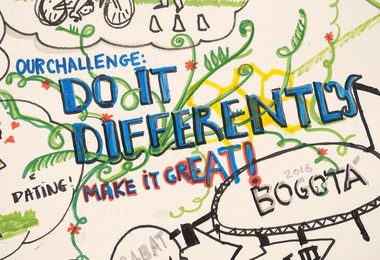 OUR CHALLENGE:
DO IT
DIFFERENTLY
DATING!
MAKE IT GREAT!
2016
BOGOTA